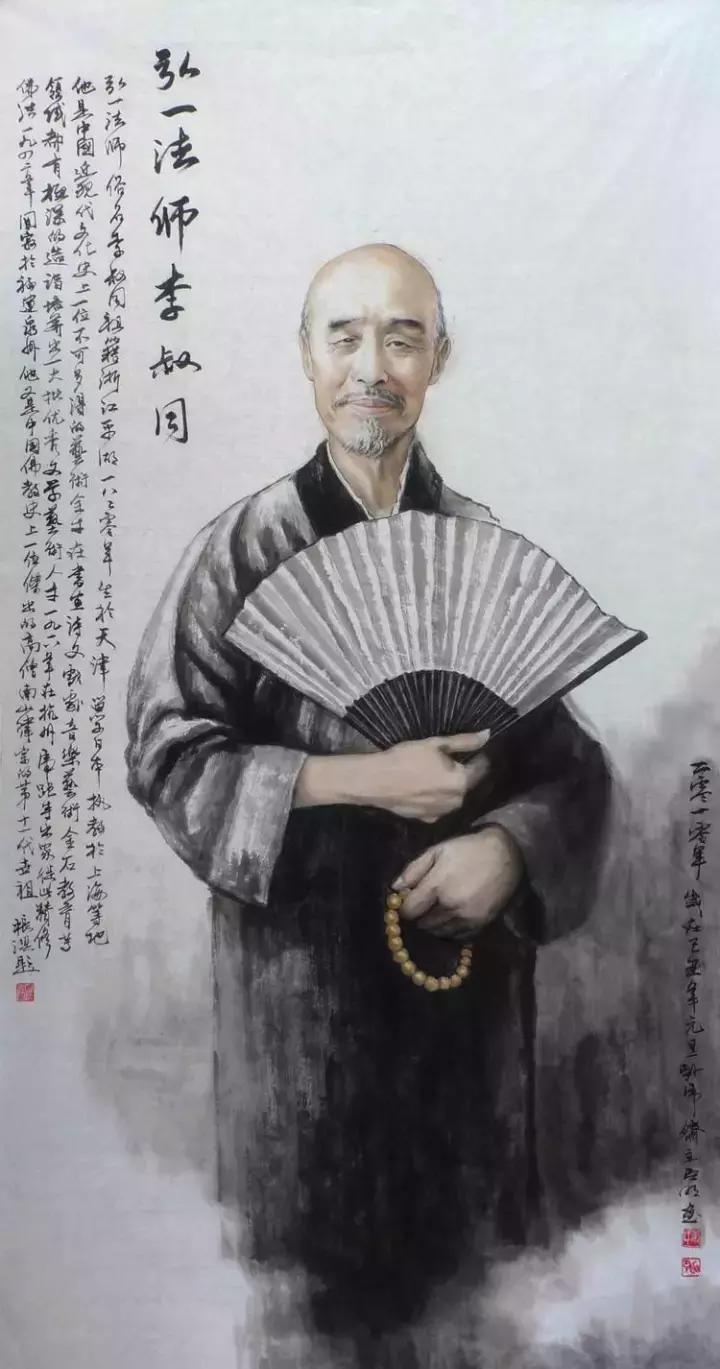 弘一法师李叔同
弘一法师俗名李叔同祖籍浙江平湖一八八零年生於天津留学日本执教於上海等地
他是中國近现代文化史上一位不可多得的藝術全才在書画诗文戏剧音樂藝術金石教育等
领域都有極深的造诣培养出一大批优秀文学藝術人才一九一八年在杭州虎跑寺出家从此精修
佛法一九四二年圆寂於福建泉州他又是中国佛教史上一位傑出的高僧南山律宗的第十一代世祖
二零一零年歲在己丑年元旦